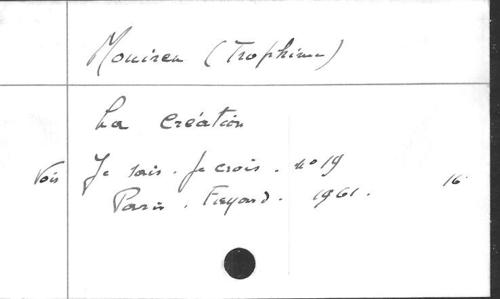 Mouiren (Trophime)
La création
Vois Je sais. Je crois. no 19
Paris. Fayard. 1961. 16